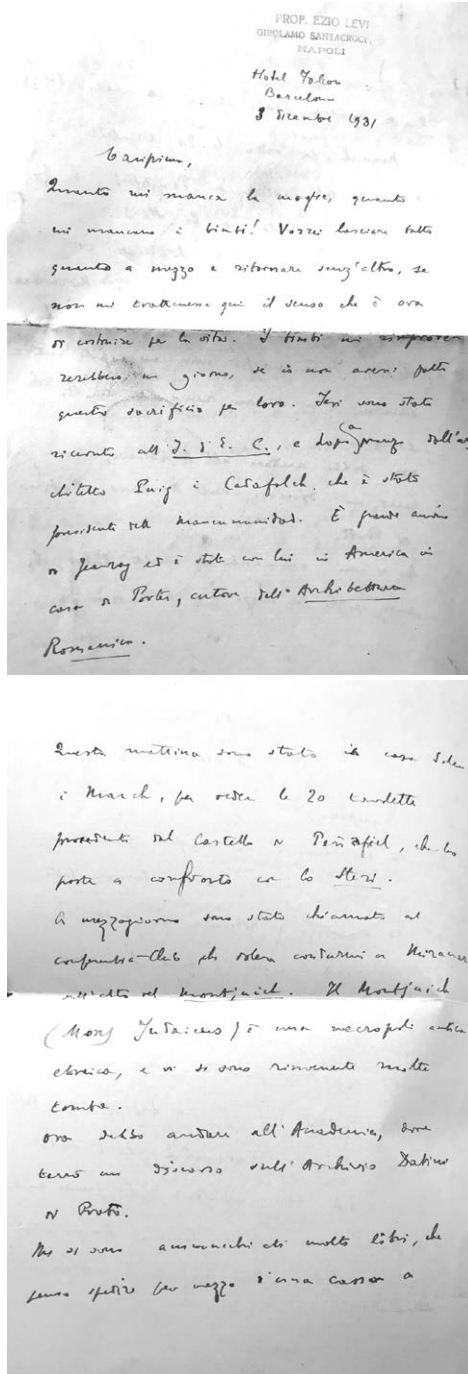 PROF. EZIO LEVI
GIROLAMO SANTACROCE,
NAPOLI
Hotel Falcon
Barcelona
3 dicembre 1931
Carissima,
Quanto mi manca la moglie, quanto
mi mancano i bimbi! Vorrei lasciare tutto
quanto a mezzo e ritornare senz'altro, se
non mi trattenesse qui il senso che è ora
di costruire per la vita. I bimbi mi rimprove
rerebbero, un giorno, se io non avessi fatto
questo sacrificio per loro. Ieri sono stato
ricevuto all'I. d'E. C., e dopo pranzo dall'ar
chitetto Puig i Cadafalch, che è stato
presidente della Mancomunidad. È grande amico
di Jeanroy ed è stato con lui in America in
casa di Porter, autore dell'Architettura
Romanica.
Questa mattina sono stato in casa
i March, per veder le 20 tavolette
provenienti dal Castello di Peñafiel, che ho
poste a confronto con lo Steri.
A mezzogiorno sono stato chiamato al
Conferentia-Club che voleva condurmi a Miramar
nell'alto del Montjuich. Il Montjuich
(Mons Judaicus) è una necropoli antica
ebraica, e vi si sono rinvenute molte
tombe.
Ora debbo andare all'Academia, dove
terrò un discorso sull'Archivio Datini
di Prato.
Mi si sono ammucchiati molti libri, che
penso spedire per mezzo d'una cassa a